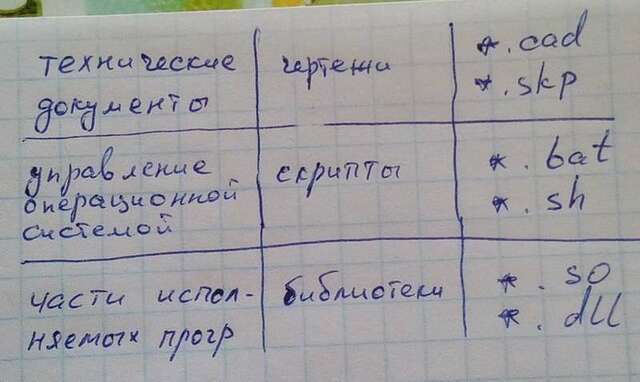 технические
документы
чертежи
*.cad
*.skp
управление
операционной
системой
скрипты
*.bat
*.sh
части испол-
няемых прогр
библиотеки
*.so
*.dll